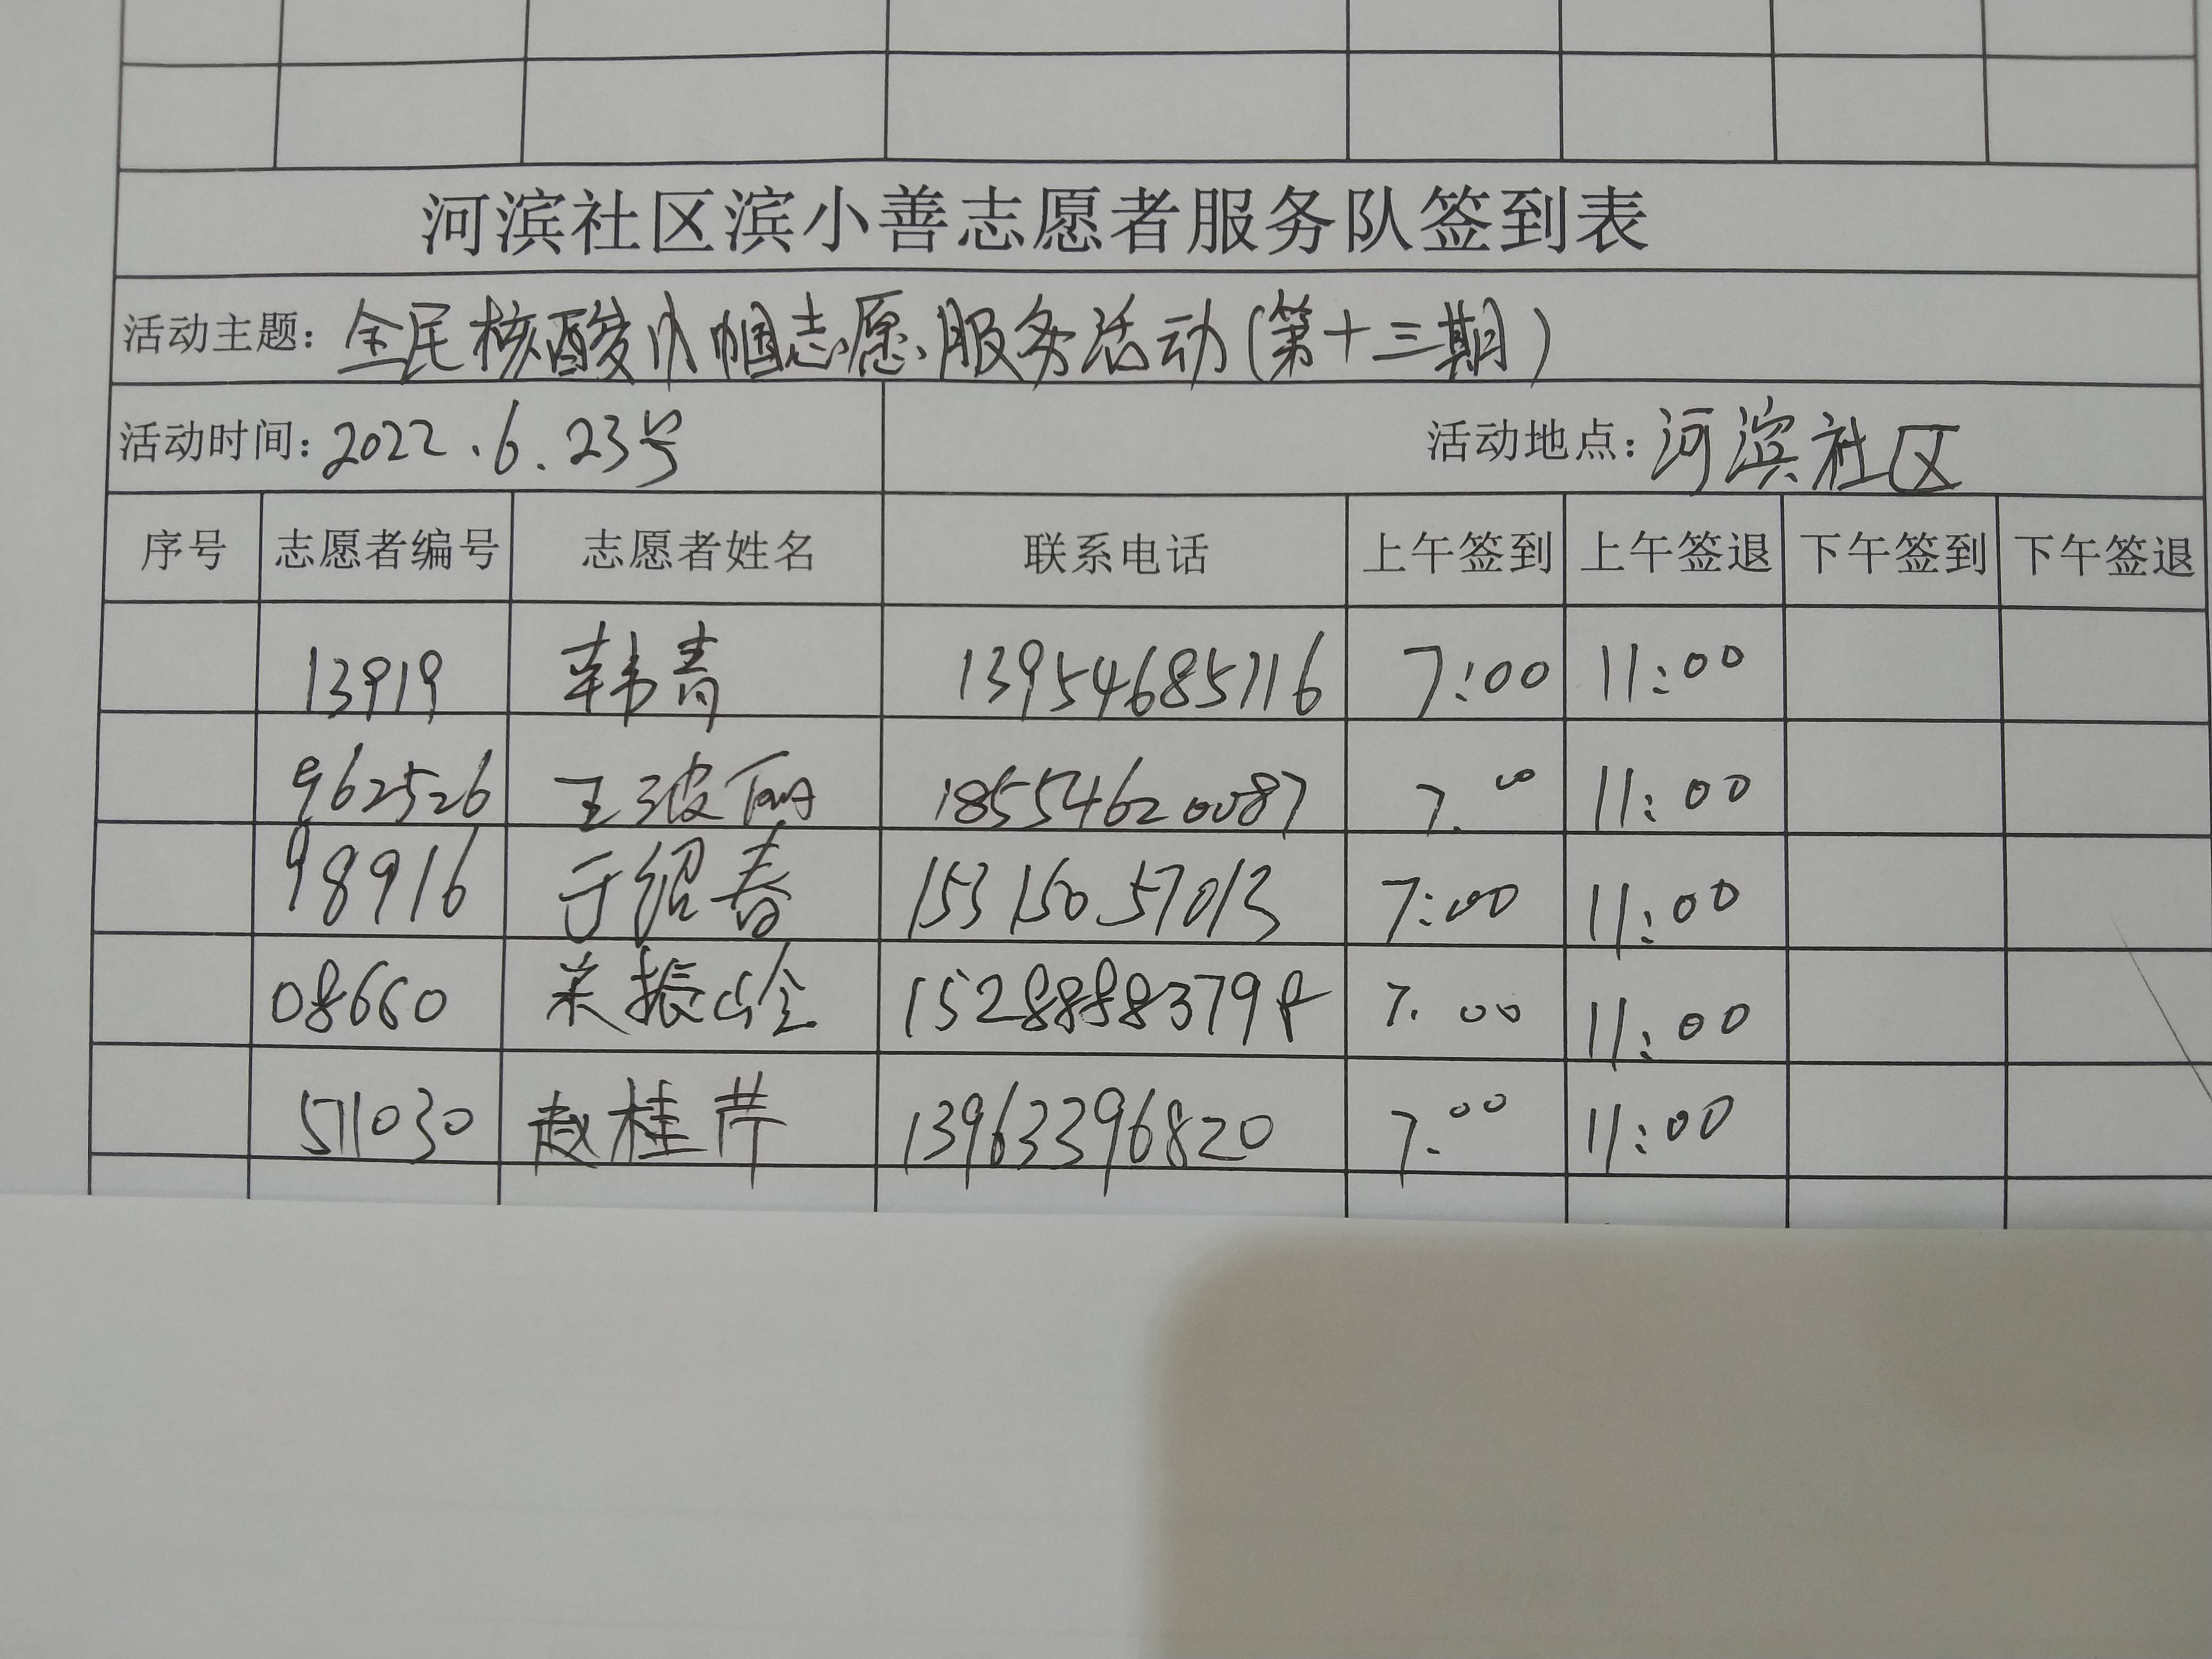 河滨社区滨小善志愿者服务队签到表
活动主题：全民核酸巾帼志愿服务活动（第十三期）
活动时间：2022.6.23号 活动地点：河滨社区
序号 志愿者编号 志愿者姓名 联系电话 上午签到 上午签退 下午签到 下午签退
13919 韩青 13954685716 7:00 11:00
962526 王波丽 18554620087 7.00 11:00
98916 于绍春 15315057013 7:00 11:00
08660 振 7.00 11:00
571030 赵桂芹 13963396820 7.00 11:00